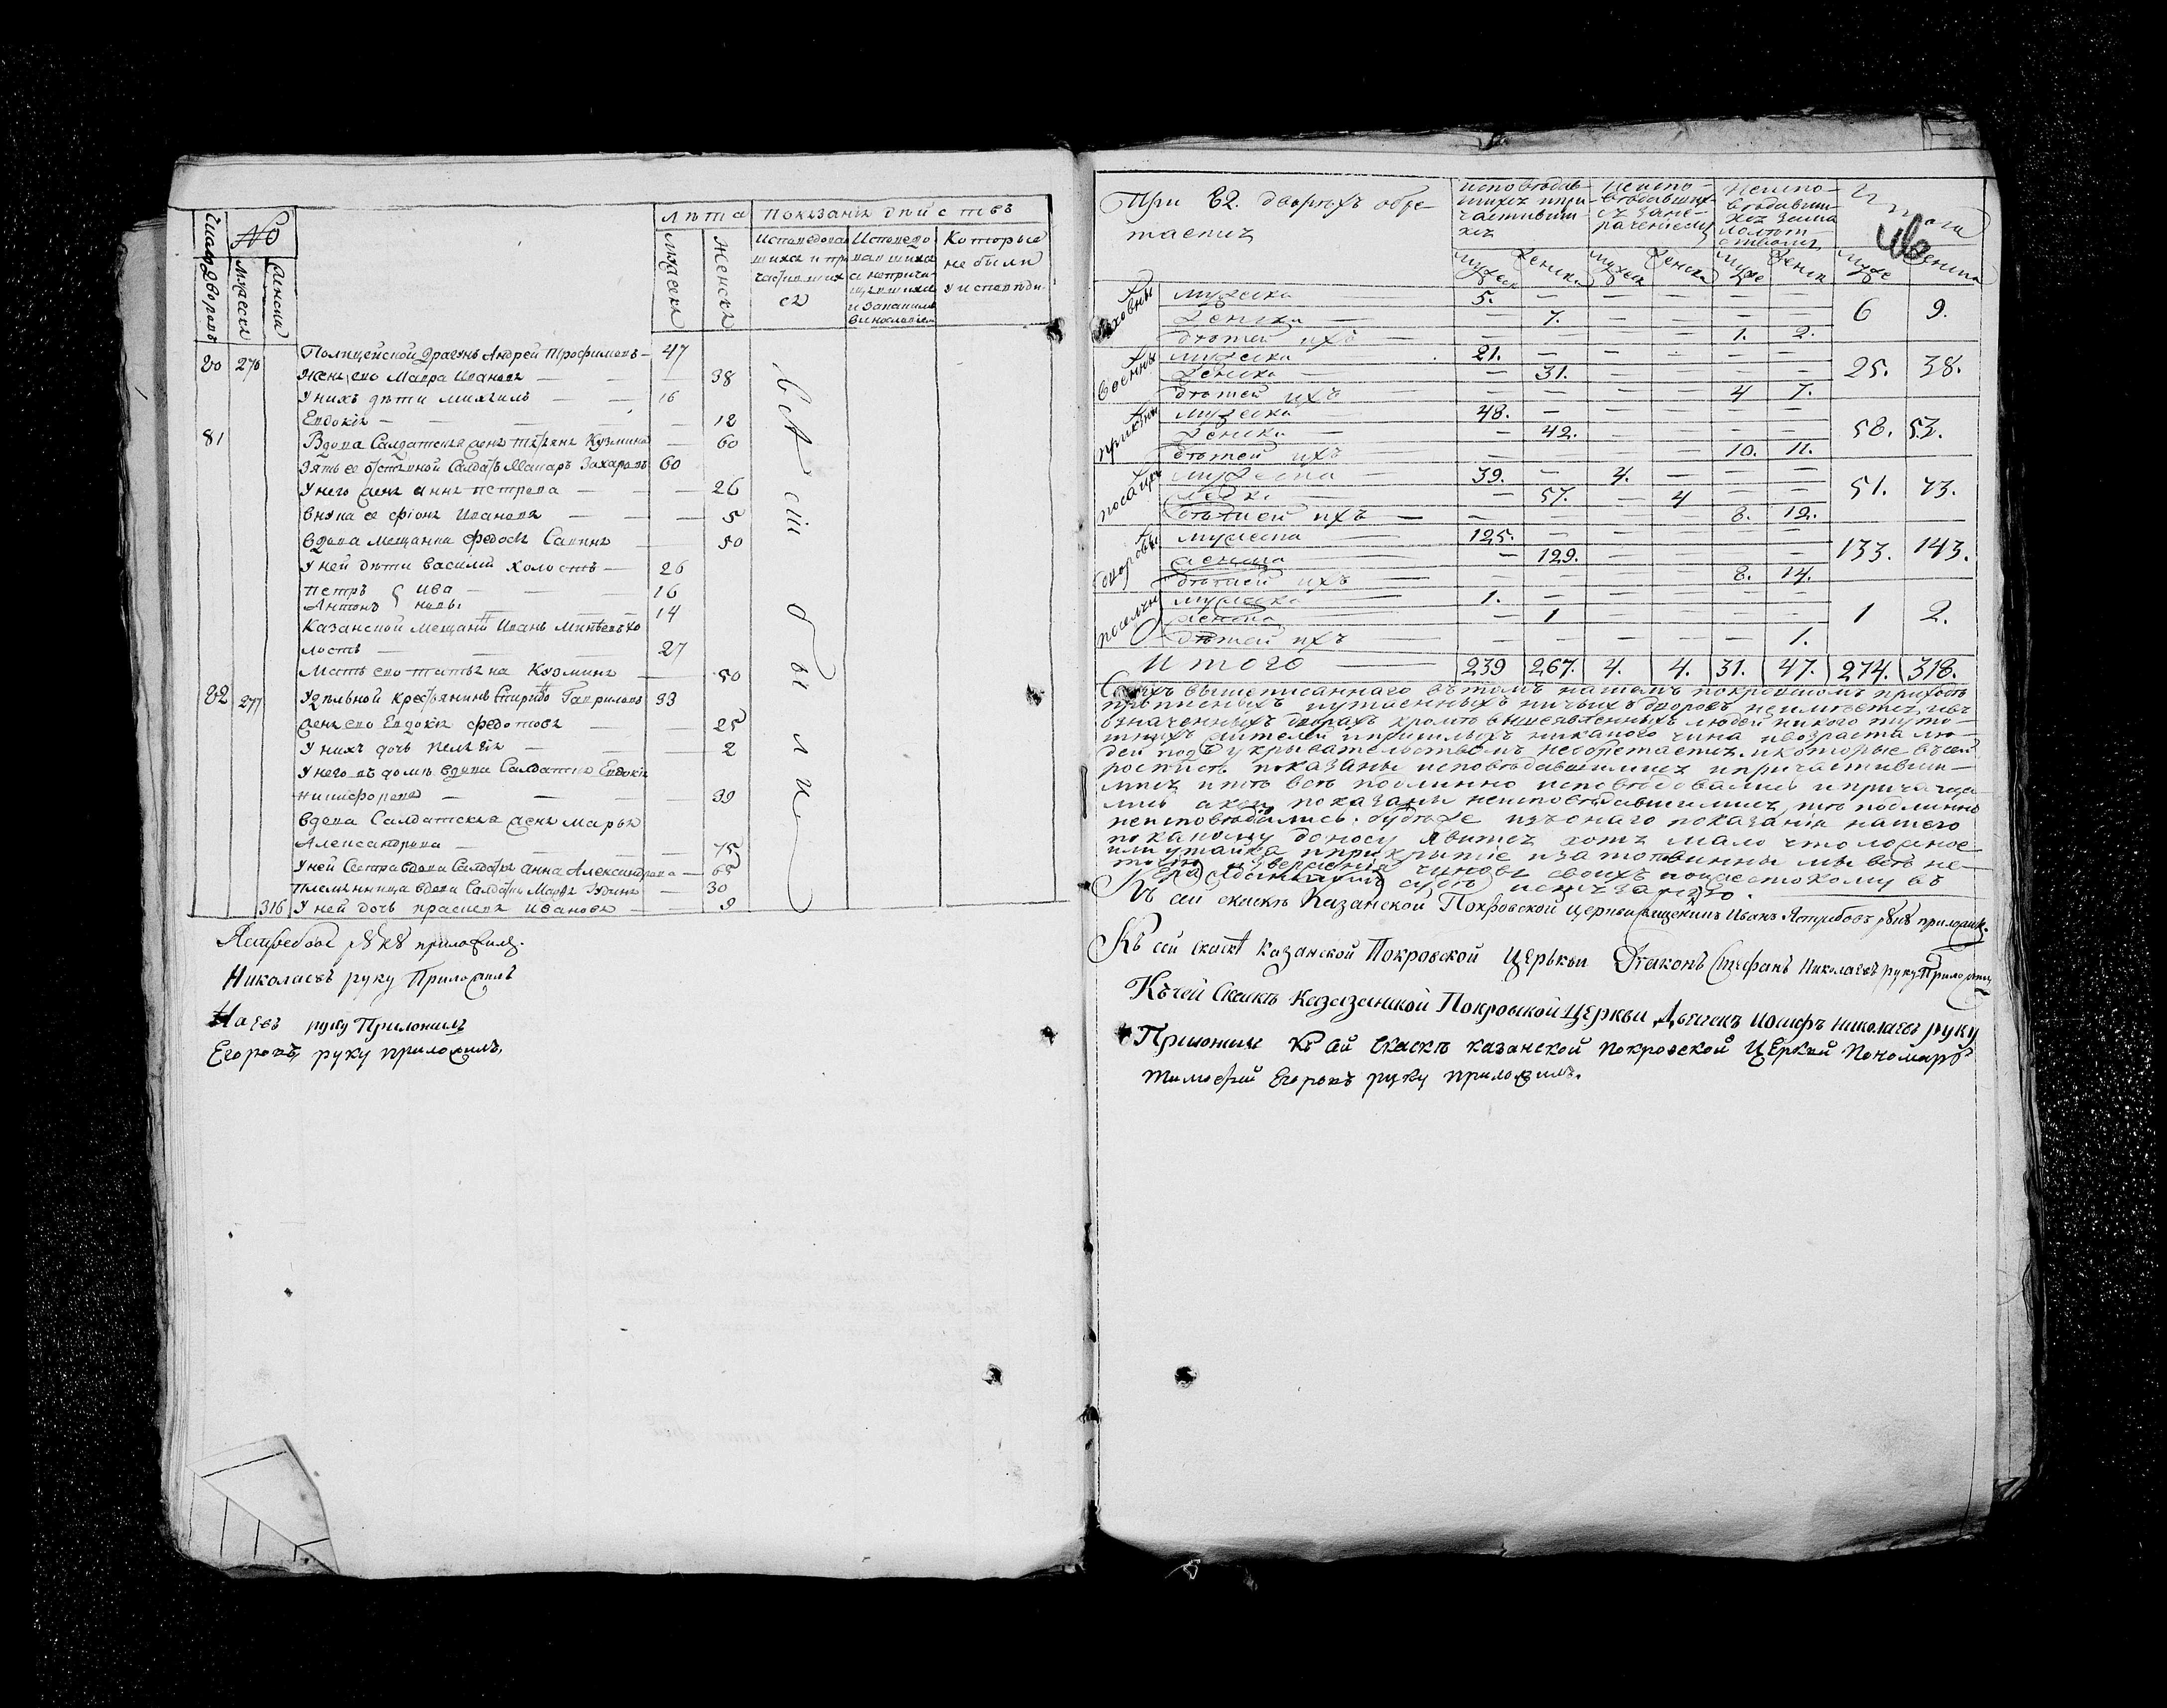 Число дворовъ
No
Мужеска
Женска
лѣта
Мужеска
Женска
Показанiе дѣйствъ
Исповедовавшихся и причастившихся
Исповедовавшихся а непричащавшихся
Которые не были у исповѣди
80 276 Полицейской драгунъ Андрей Трофимовъ — 47
Жена ево Мавра Иванова — 38
У нихъ дѣти михаилъ — 16
Евдокiя — 12
81 Вдова Салдатская жена татьяна Кузмина — 60
Зять ее отставной Салдатъ Макаръ Захаровъ 60
У него жена анна петрова — 26
внука ее фiона Иванова — 5
вдова мещанка федосья Савина 50
У ней дѣти василий холостъ — 26
петръ } ива — 16
Антонъ } новы — 14
Казанской мещанинъ Иванъ хо
лостъ — 27
Мать ево татьяна Кузмина — 50
82 277 Удѣльной крестьянинъ Спиридо Гавриловъ 33
жена ево Евдокiя федотова — 25
У нихъ дочь пелагея — 2
У него въ домѣ вдова Салдатка Евдокiя
никифорова — 39
вдова Салдатская жена марья
Александрова — 75
У ней Сестра вдова Салдатка Анна Александрова — 65
племянница вдова Салдатка — 30
316 У ней дочь прасковья иванова — 9
всѣ сiи были
Ястребовъ рꙋкꙋ приложилъ.
Николаевъ руку Приложилъ
лаевъ руку Приложилъ
Егоровъ руку приложилъ.
При 82. дворѣхъ обре
таетца
исповѣдав
шихся и при
частивши
хся
неиспо
вѣдавших
ся
неиспо
вѣдавши
хся за ма
лолѣт
ствомъ
Итого
46
Мужс женска Мужск женска Мужс женск Мужс женска
Духовны мужеска 5. — — — — —
женска — 7. — — — — 6 9.
дѣтей ихъ — — — — 1. 2.
военны мужеска 21. — — — — —
женска — 31. — — — — 25. 38.
дѣтей ихъ — — — — 4 7.
приказны мужеска 48. — — — — —
женска — 42. — — — — 58. 53.
дѣтей ихъ — — — — 10. 11.
посацки мужеска 39. — 4. — — —
женска — 57. — 4 — — 51. 73.
дѣтей ихъ — — — — 8. 12.
дворовы мужеска 125. — — — — —
женска — 129. — — — — 133. 143.
дѣтей ихъ — — — — 8. 14.
поселян мужеска 1. — — — — —
женска — 1 — — — — 1 2.
дѣтей ихъ — — — — — 1.
Итого — 239 267. 4. 4. 31. 47. 274. 318.
вышеписаннаго въ томъ нашемъ покровскомъ приходѣ
и утаенныхъ ничьихъ дворовъ неимѣется, и въ
означенныхъ дворахъ кромѣ вышеявленныхъ людей никого туто
шнихъ жителей и пришлыхъ никакого чина и возраста лю
дей под укрывательствомъ необретается. и которые въ сей
росписи показаны исповѣдавшимися и причастивши
мися и тѣ всѣ подлинно исповѣдовались и причаща
лись а кои показаны неисповѣдавшимися, тѣ подлинно
неисповѣдались. будеже изъ онаго показанiя нашего
по какому доносу явится хотя мало что ложное
или утайка и прикрытiе и за то повинны мы всѣ не
чиновъ своихъ и жестокому въ
судѣ истязанiю.
Къ сей скаскѣ Казанской Покровской церкви священникъ Иванъ Ястребовъ рꙋкꙋ приложилъ.
Къ сей скаскѣ казанской Покровской Церькви Дiаконъ Стефанъ Николаевъ руку Приложилъ
Къ сей Скаскѣ Казазанской Покровской Церкви Дьячекъ иосифъ николаевъ руку
Приложилъ Къ сей скаскѣ казанской покровской Церкви Пономарь
тимофей Егоровъ руку приложилъ.